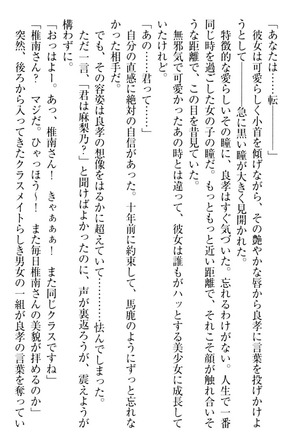 「あなたは……転――」
　彼女は可愛らしく小首を傾げながら、その艶やかな唇から良孝に言葉を投げかけよ
うとして――　急に黒い瞳が大きく見開かれた。
　特徴的な愛らしいその瞳に、良孝はすぐ気づいた。忘れるわけがない。人生で一番
同じ時を過ごした女の子の瞳だ。もっともっと近い距離で、それこそ顔が触れ合いそ
うな距離で、この目を昔見ていた。
　無邪気で可愛かったあの時とは違って、彼女は誰もがハッとする美少女に成長して
いたけれど。
「あの……君って……」
　自分の直感に絶対の自信があった。十年前に約束して、馬鹿のようにずっと忘れな
かった相手だ。
　でも、その容姿は良孝の想像をはるかに超えていて……怯んでしまった。
　ただ一言、「君は麻梨乃？」と聞けばよかったのに、声が裏返ろうが、震えようが
構わずに。
「おっはよー。あっ、椎南さん！　きゃぁぁぁ！　また同じクラスですね」
「椎南さん！　マジだ。ひゃっほう～！　また毎日椎南さんの美貌が拝めるのか」
　突然、後ろから入ってきたクラスメイトらしき男女の一組が良孝の言葉を奪ってい